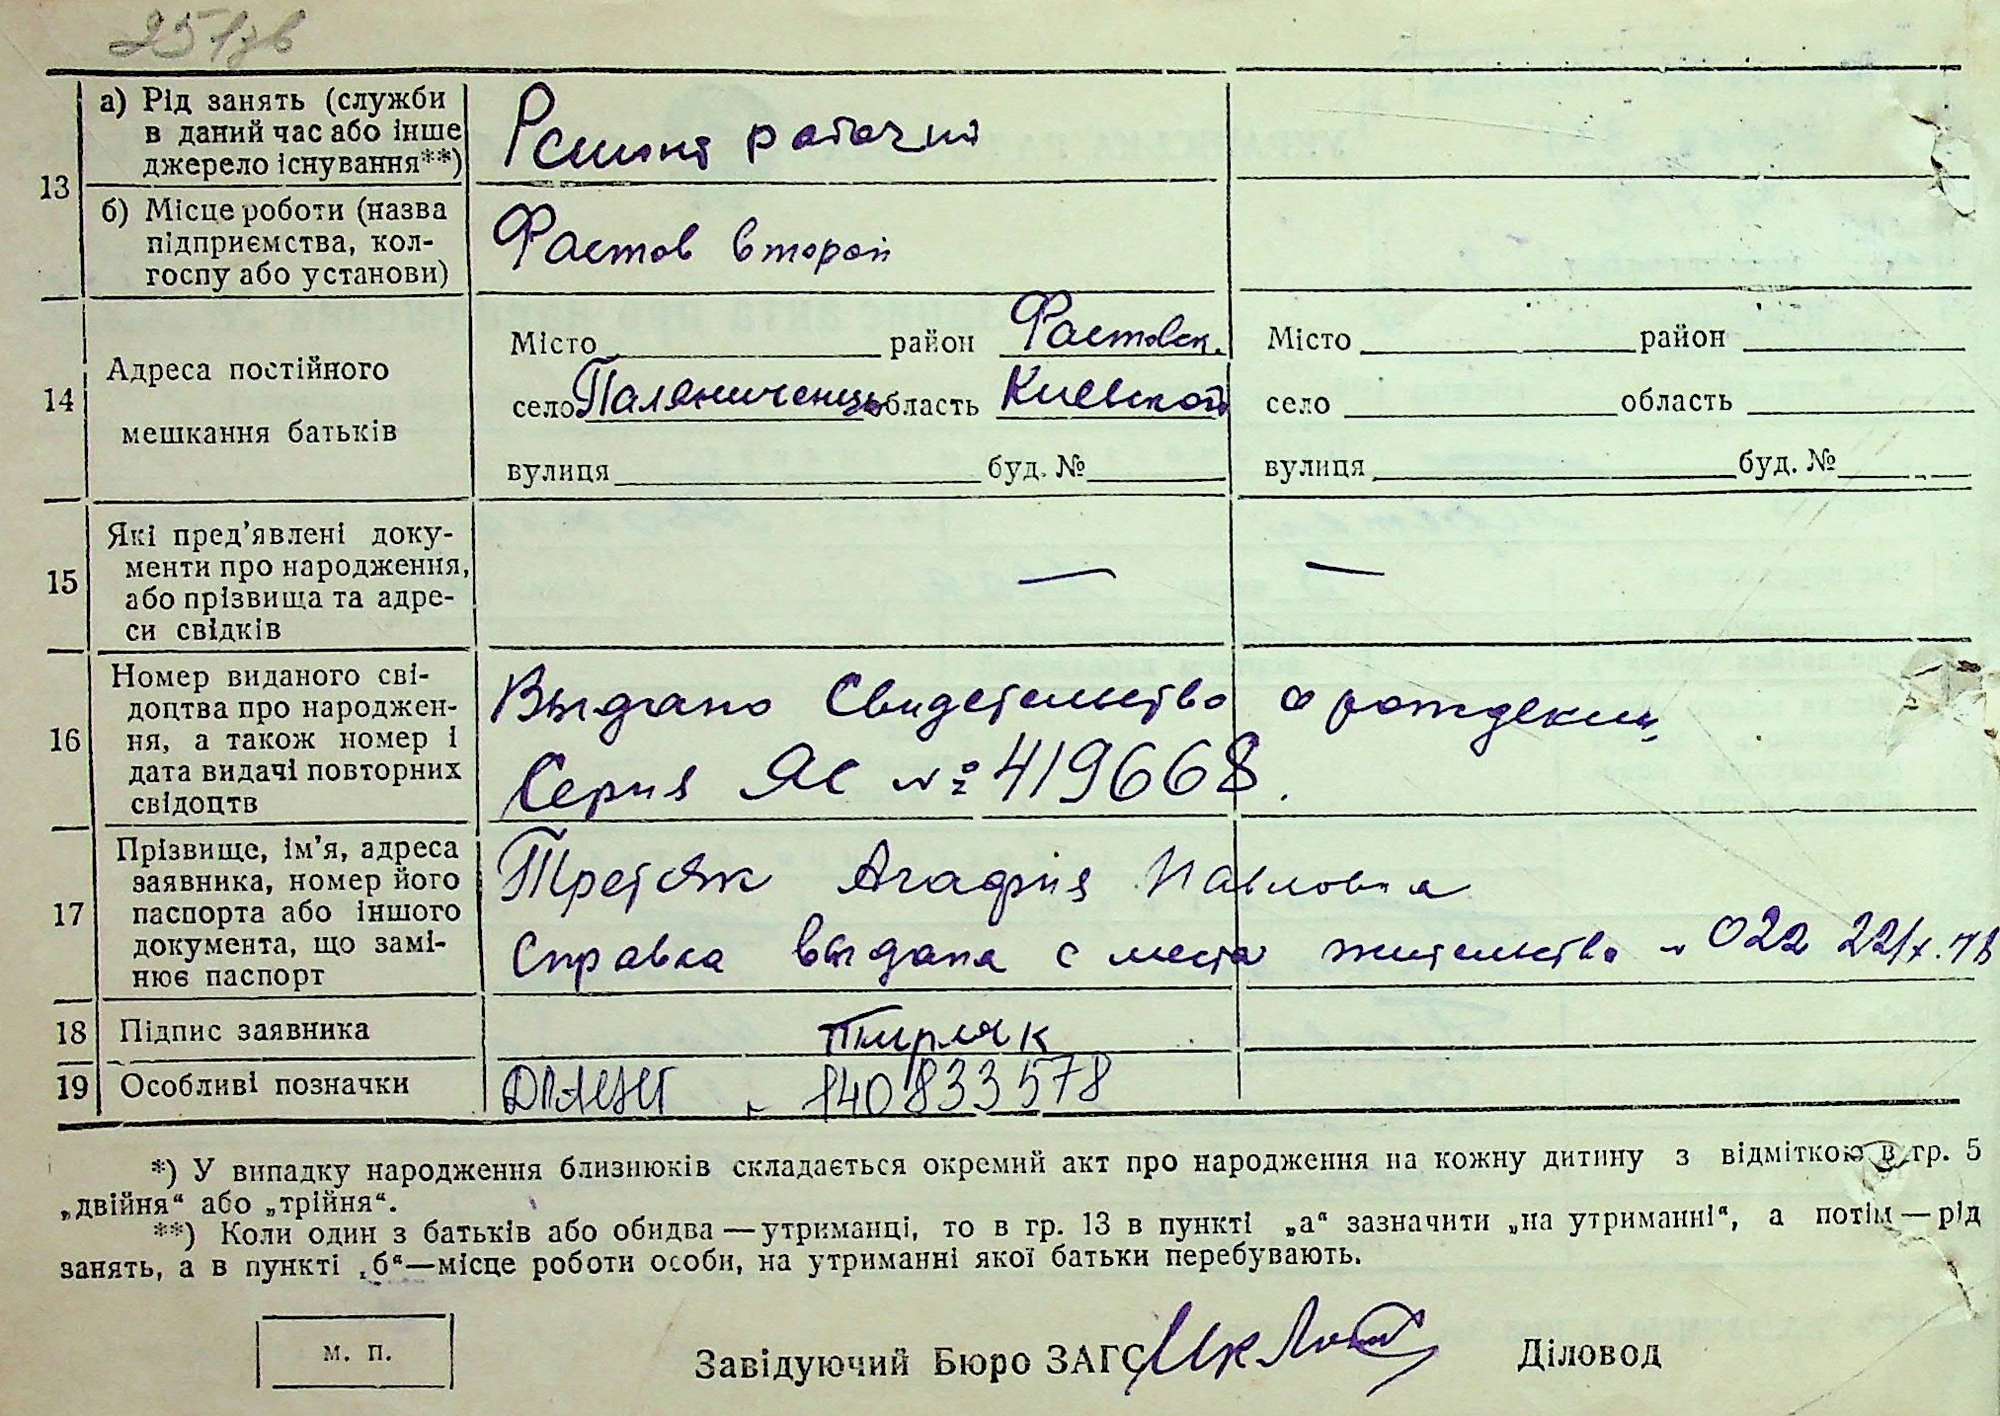 251зв
13
а) Рід занять (служби
в даний час або інше
джерело існування**)
рабочий
б) Місце роботи (назва
підприємства, кол-
госпу або установи)
Фастов второй
14
Адреса постійного
мешкання батьків
Місто район Фастовск.
село Паляниченць область Киевской
вулиця буд. №
Місто район
село область
вулиця буд. №
15
Які пред’явлені доку-
менти про народження,
або прізвища та адре-
си свідків
— —
16
Номер виданого сві-
доцтва про народжен-
ня, а також номер і
дата видачі повторних
свідоцтв
Выдано Свидетельство о рождении
Серия ЯС № 419668.
17
Прізвище, ім’я, адреса
заявника, номер його
паспорта або іншого
документа, що замі-
нює паспорт
Третяк Агафия Павловна
Справка выдана с места жительства 022 22/X.
18
Підпис заявника
19
Особливі позначки
140833578
*) У випадку народження близнюків складається окремий акт про народження на кожну дитину з відміткою в гр. 5
„двійня“ або „трійня“.
**) Коли один з батьків або обидва — утриманці, то в гр. 13 в пункті „а“ зазначити „на утриманні“, а потім — рід
занять, а в пункті „б“—місце роботи особи, на утриманні якої батьки перебувають.
м. п.
Завідуючий Бюро ЗАГС
Діловод